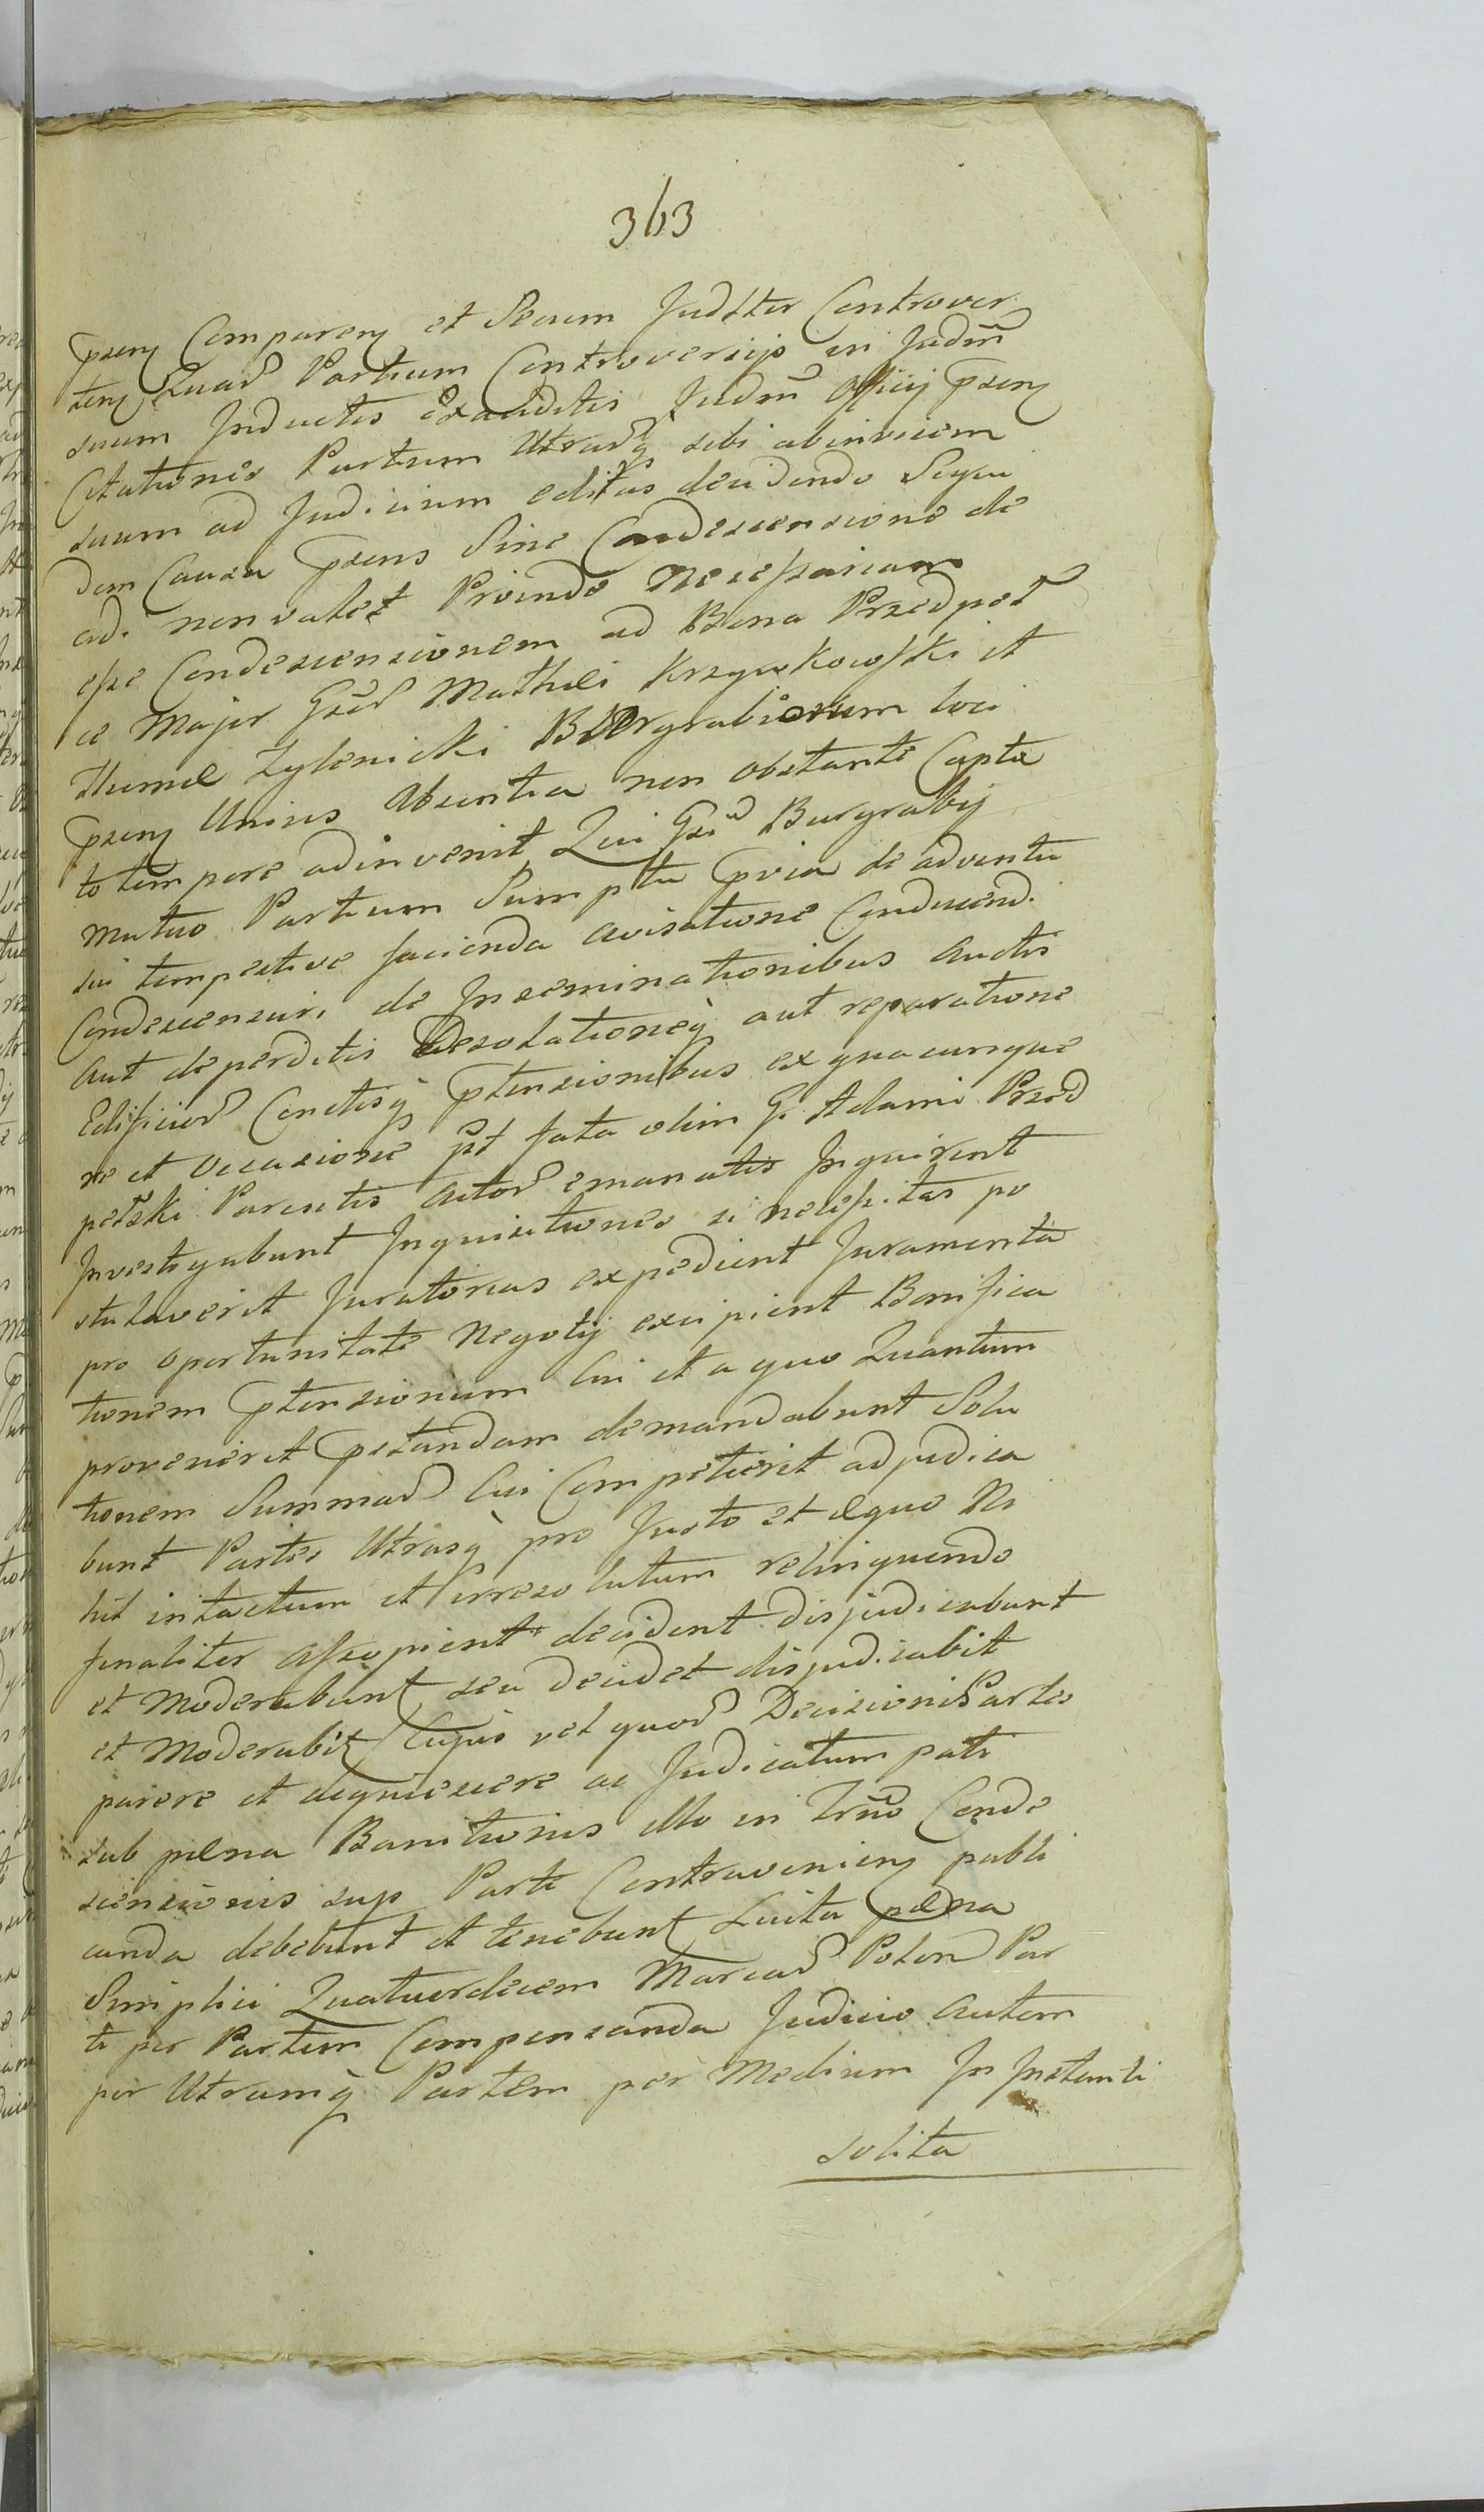 363
pseny Compareny et Secum Judltter Controver
teny Quar Partium Controversijs in Judm
suum Inductis Exauditis Judm Officij pseny
Citationes Partium Utrarq sibi abinvicem
suum ad Judicium editas decidendo Siqui
dem Causa psens Sine Condescensione de
cidi non valet Proinde Necessariam
esse Condescensionem ad Bona Przedpol
ce Major Gsd Mathei Krzywkowski et
Thomae Zylenicki Burgrabiorum loci
pseny Unius Absentia non obstante Capta
to tempore adinvenit Qui Gsd Burgrabij
mutuo Partium Sumptu pvia de adventu
sui tempestive facienda avisatione Conducend.
Condescensuri de Inseminationibus Auctis
Aut deperditis Desolationeq aut reparatione
Edificior Cunctisq ptensionibus ex quacunque
re et occasione pt fata olim G. Adami Przed
pelski Parentis Actor emanatis Inquirent
Investigabunt Inquisitiones si necessitas po
stulaverit Juratorias expedient Juramenta
pro oportunitate Negotij excipient Bonifica
tionem ptensionum Cui et a quo Quantum
provenerit pstandam demandabunt Solu
tionem Summar Cui Competierit adjudica
bunt Partes Utrasq pro Justo et aequo Ni
hil intactum et irresolutum relinquendo
finaliter Assopient decident disjudicabunt
et Moderabunt seu decidet disjudicabit
et Moderabit Cujus vel quor Decisioni Partes
parere et acquiescere ac Judicatum pati
sub paena Banitionis illo in Trno Conde
scensionis sup Parte Contravenieny publi
canda debebunt et tenebunt Luita paena
Simplici Quatuordecem Marcar Polon Par
ti per Partem Compensanda Judicio Autem
per Utramq Partem per Medium In Instanti
solita